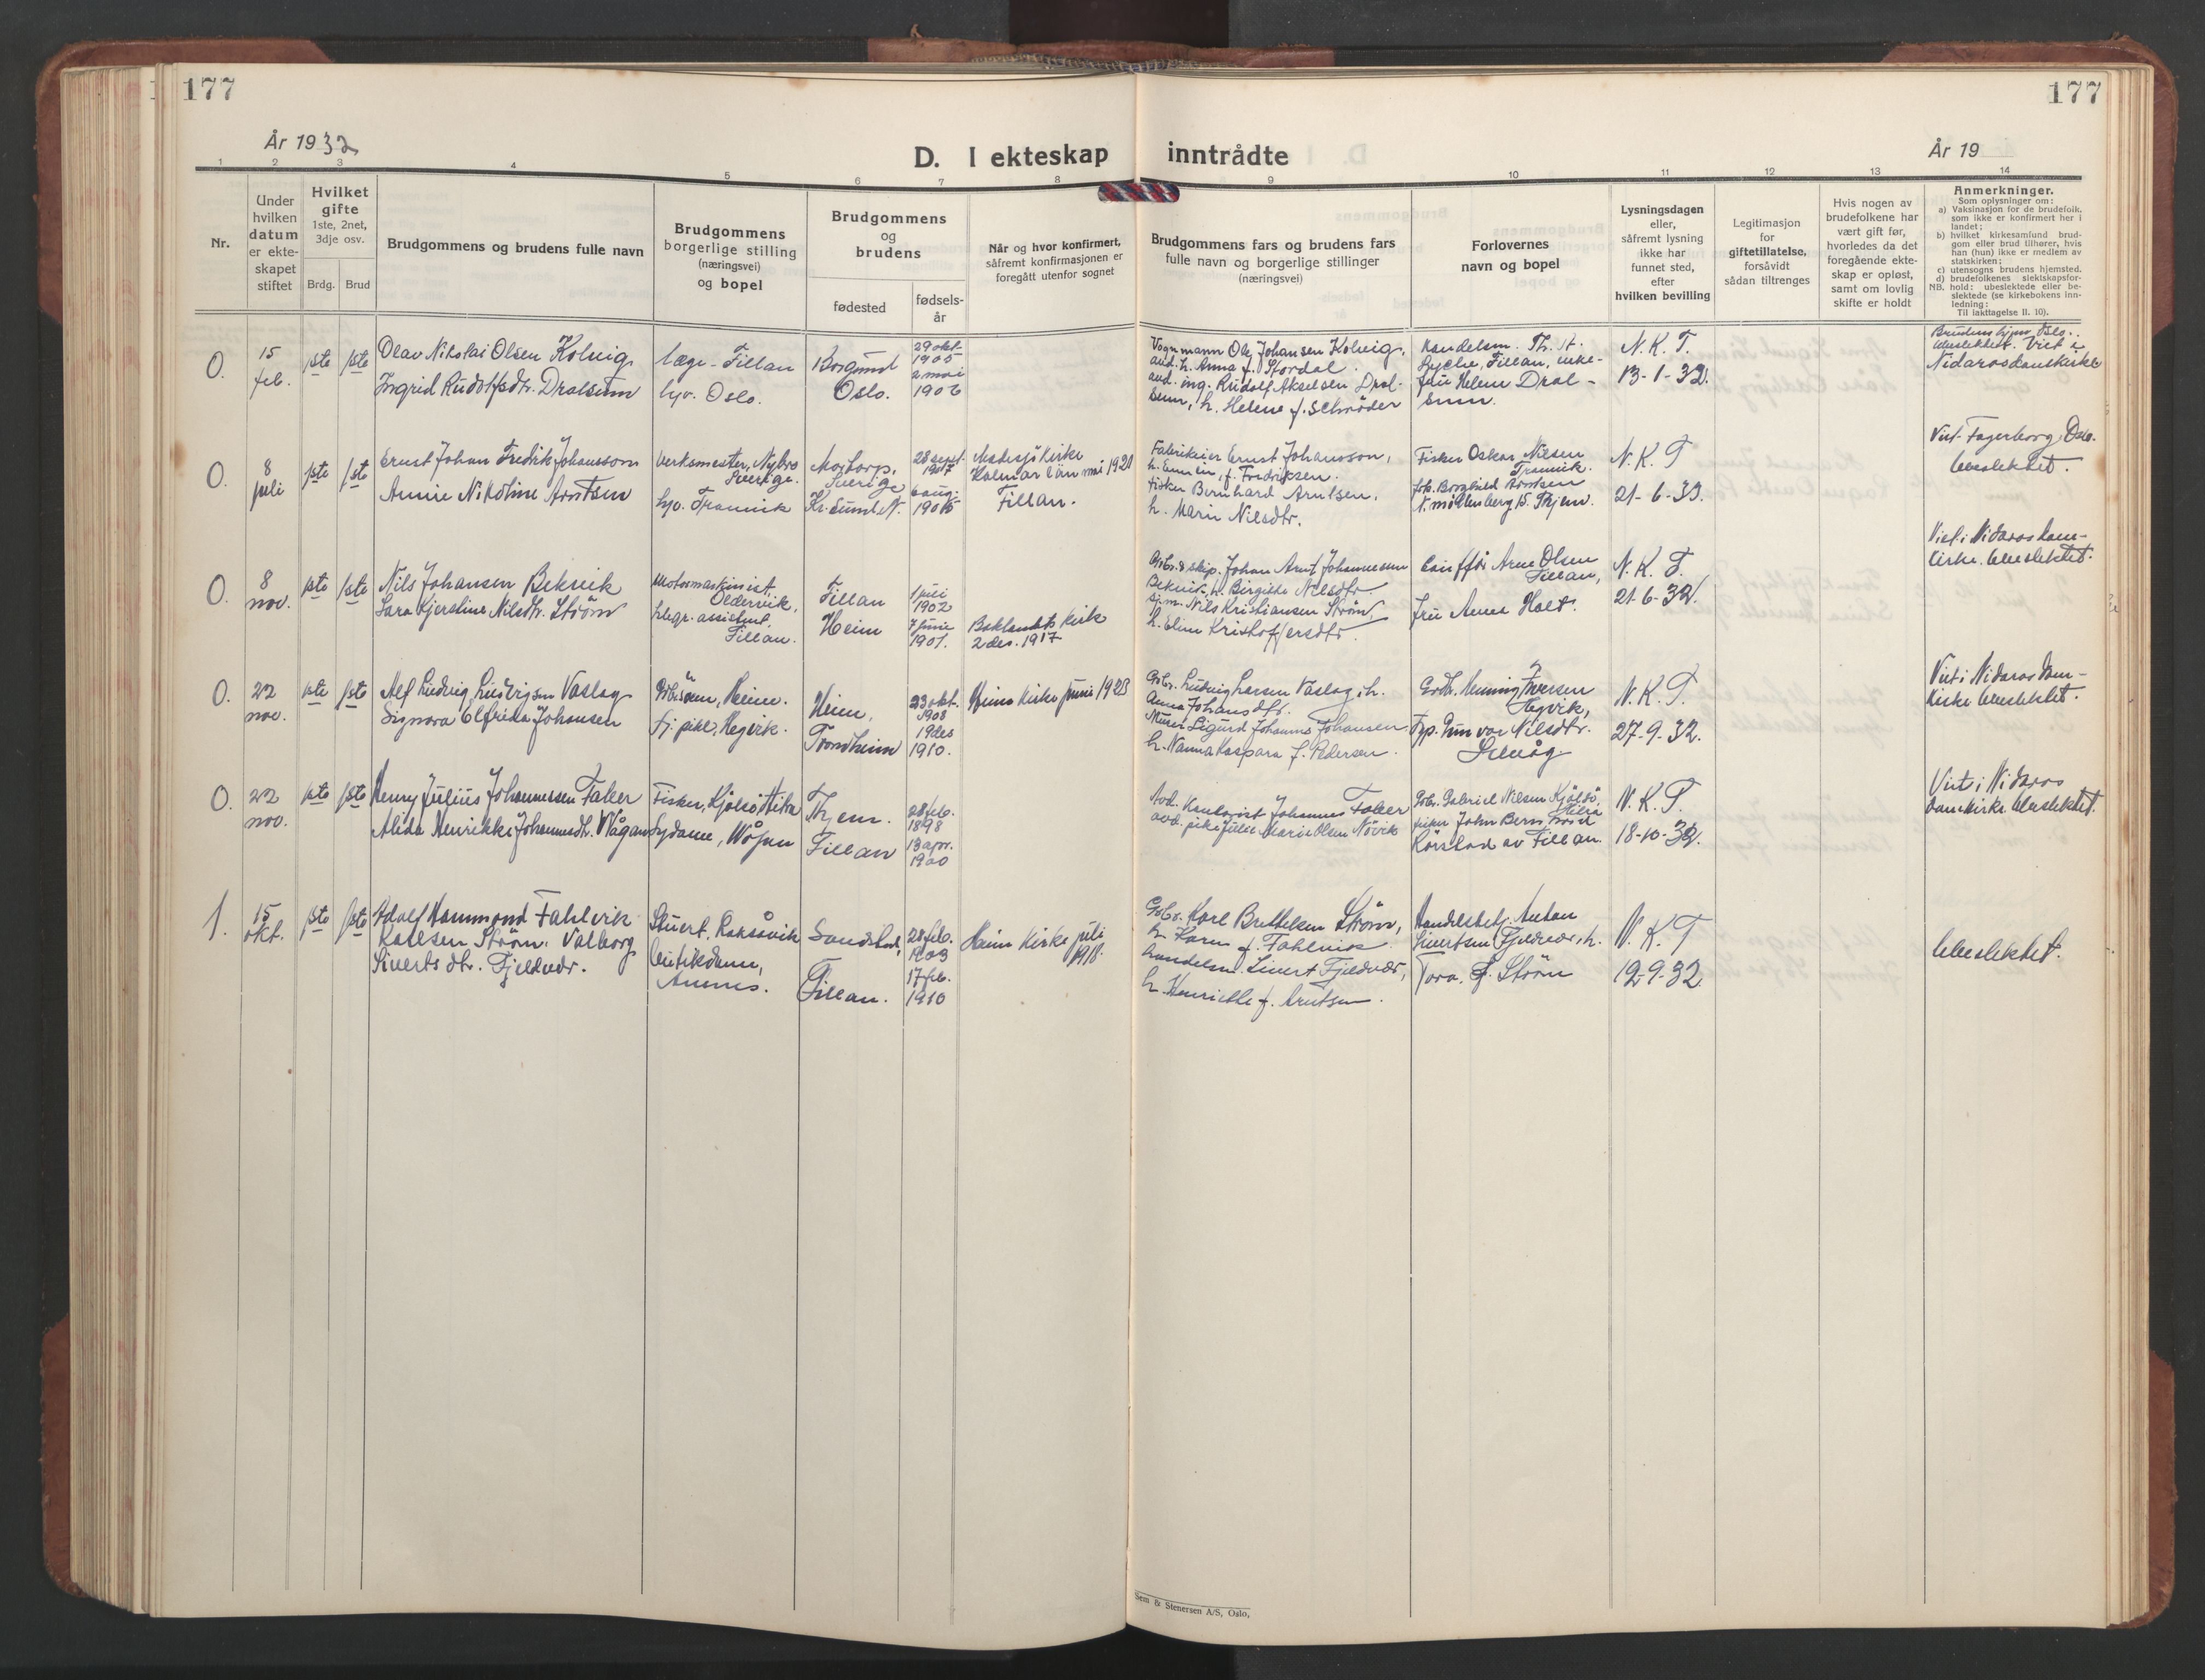 177
177
År 1932
År 19
D. I ekteskap inntrådte
1 2 3 4 5 6 7 8 9 10 11 12 13 14
Nr.
Under
hvilken
datum
er ekte-
skapet
stiftet
Hvilket
gifte
1ste, 2net,
3dje osv.
Brdg. Brud
Brudgommens og brudens fulle navn
Brudgommens
borgerlige stilling
(næringsvei)
og bopel
Brudgommens
og
brudens
fødested
fødsels-
år
Når og hvor konfirmert,
såfremt konfirmasjonen er
foregått utenfor sognet
Brudgommens fars og brudens fars
fulle navn og borgerlige stillinger
(næringsvei)
Forlovernes
navn og bopel
Lysningsdagen
eller,
såfremt lysning
ikke har
funnet sted,
efter
hvilken bevilling
Legitimasjon
for
giftetillatelse,
forsåvidt
sådan tiltrenges
Hvis nogen av
brudefolkene har
vært gift før,
hvorledes da det
foregående ekte-
skap er opløst,
samt om lovlig
skifte er holdt
Anmerkninger.
Som oplysninger om:
a) Vaksinasjon for de brudefolk,
som ikke er konfirmert her i
landet;
b) hvilket kirkesamfund brud-
gom eller brud tilhører, hvis
han (hun) ikke er medlem av
statskirken;
c) utensogns brudens hjemsted.
d) brudefolkenes slektskapsfor-
hold: ubeslektede eller be-
slektede (se kirkebokens inn-
ledning:
NB. Til iakttagelse II. 10).
0.
15
feb.
1ste 1ste
Olav Nikolai Olsen Kolvig
Ingrid Rudolfsdtr. Dralsum
læge - Fillan
hjv. Oslo.
Borgund
Oslo.
29 okt.
1905
2 mai
1906
Vognmann Ole Johansen Kolvig,
h. Anna f. Stordal.
ing. Rudolf Akselsen Dral-
sum, h. Helene f. Schrøder
Handelsm. Th. H.
Lyche, Fillan, enke-
frue Helene Dral-
sum.
N. K. T.
13-1-32.
Brudens hjem Oslo.
Ubeslektet. Viet i
Nidarosdomkirke
0.
8
juli
1ste 1ste
Ernst Johan Fredrik Johansson
Annie Nikoline Arntsen
Verksmester, Nybro
Sverige.
hjv. Tranvik
Mortorp,
Sverige
Kr.sund N.
28 sept.
1907
6 aug.
1905
Madesjö Kirke
Kalmar län mai 1921
Fillan.
Fabrikeier Ernst Johansson,
h. f. Fredriksen.
Fisker Bernhard Arntsen,
h. Marie Nilsdtr.
Fisker Oskar Nilsen
Tranvik.
frk. Borghild Arntsen
N. Møllenberg 15. Thjem.
N. K. T
21-6-32.
Viet Fagerborg Oslo.
Ubeslektet.
0.
8
nov.
1ste 1ste
Nils Johansen Bekvik
Sara Kjerstine Nilsdtr. Strøm
Motormaskinist
Oldervik,
telegr. assistent,
Fillan.
Fillan
Heim
1 juli
1902
7 juni
1901.
Baklandets kirke
2 des. 1917
Gbr. & skip. Johan Arnt Johannessen
Bekvik, h. Birgitte Nilsdtr.
Nils Kristiansen Strøm,
h. Eline Kristoffersdtr.
Arne Olsen
Fillan,
fru Anna Holt.
N. K. T.
21-6-32.
Viet i Nidaros dom-
kirke. Ubeslektet.
0.
22
nov.
1ste 1ste
Alf Ludvig Ludvigsen Vaslag
Signora Elfrida Johansen
Gbr.sønn, Heim.
tj. pike, Hegvik.
Heim,
Trondheim
23 okt.
1908
19 des
1910.
Heims kirke juni 1923
Gbr. Ludvig Larsen Vaslag, h.
Anna Johansdtr.
Murer Sigurd Johannes Johansen,
h. Nanna Kaspara f. Pedersen.
Henning Iversen
Hegvik,
Gunvor Nilsdtr.
N. K. T.
27-9-32.
Viet i Nidaros dom-
kirke Ubeslektet.
0.
22
nov.
1ste 1ste
Henry Julius Johannessen Faller
Alida Henrikke Johannesdtr. Wågan
Fisker, Kjølsø Hitra
Sydame, Wågan
Thjem.
Fillan
28 feb.
1898
13 apr.
1900
Johannes Faller
avd. pike Julie Marie Olsen Nørvik
Gbr. Gabriel Nilsen Kjølsø,
Hitra
fisker John Bern.
av Fillan.
N. K. T.
18-10-32.
Viet i Nidaros
domkirke. Ubeslektet.
1.
15
okt.
1ste 1ste
Adolf Hammond Fahlvik
Karlsen Strøm. Valborg
Siverts dtr. Fjeldvær.
Stuert, Raksåvik
butikdame,
Sandstad,
Fillan.
28 feb.
1903
17 feb.
1910
Heim kirke juli
1918.
Gbr. Karl Bertelsen Strøm,
h. Karen f. Fahlvik
handelsm. Sivert Fjeldvær,
h. Henriette f. Arntsen.
Handelsbetj. Anton
Sivertsen Fjeldvær, h.
Tora f. Strøm
N. K. T
12-9-32.
Ubeslektet.
Sem & Stenersen A/S, Oslo.